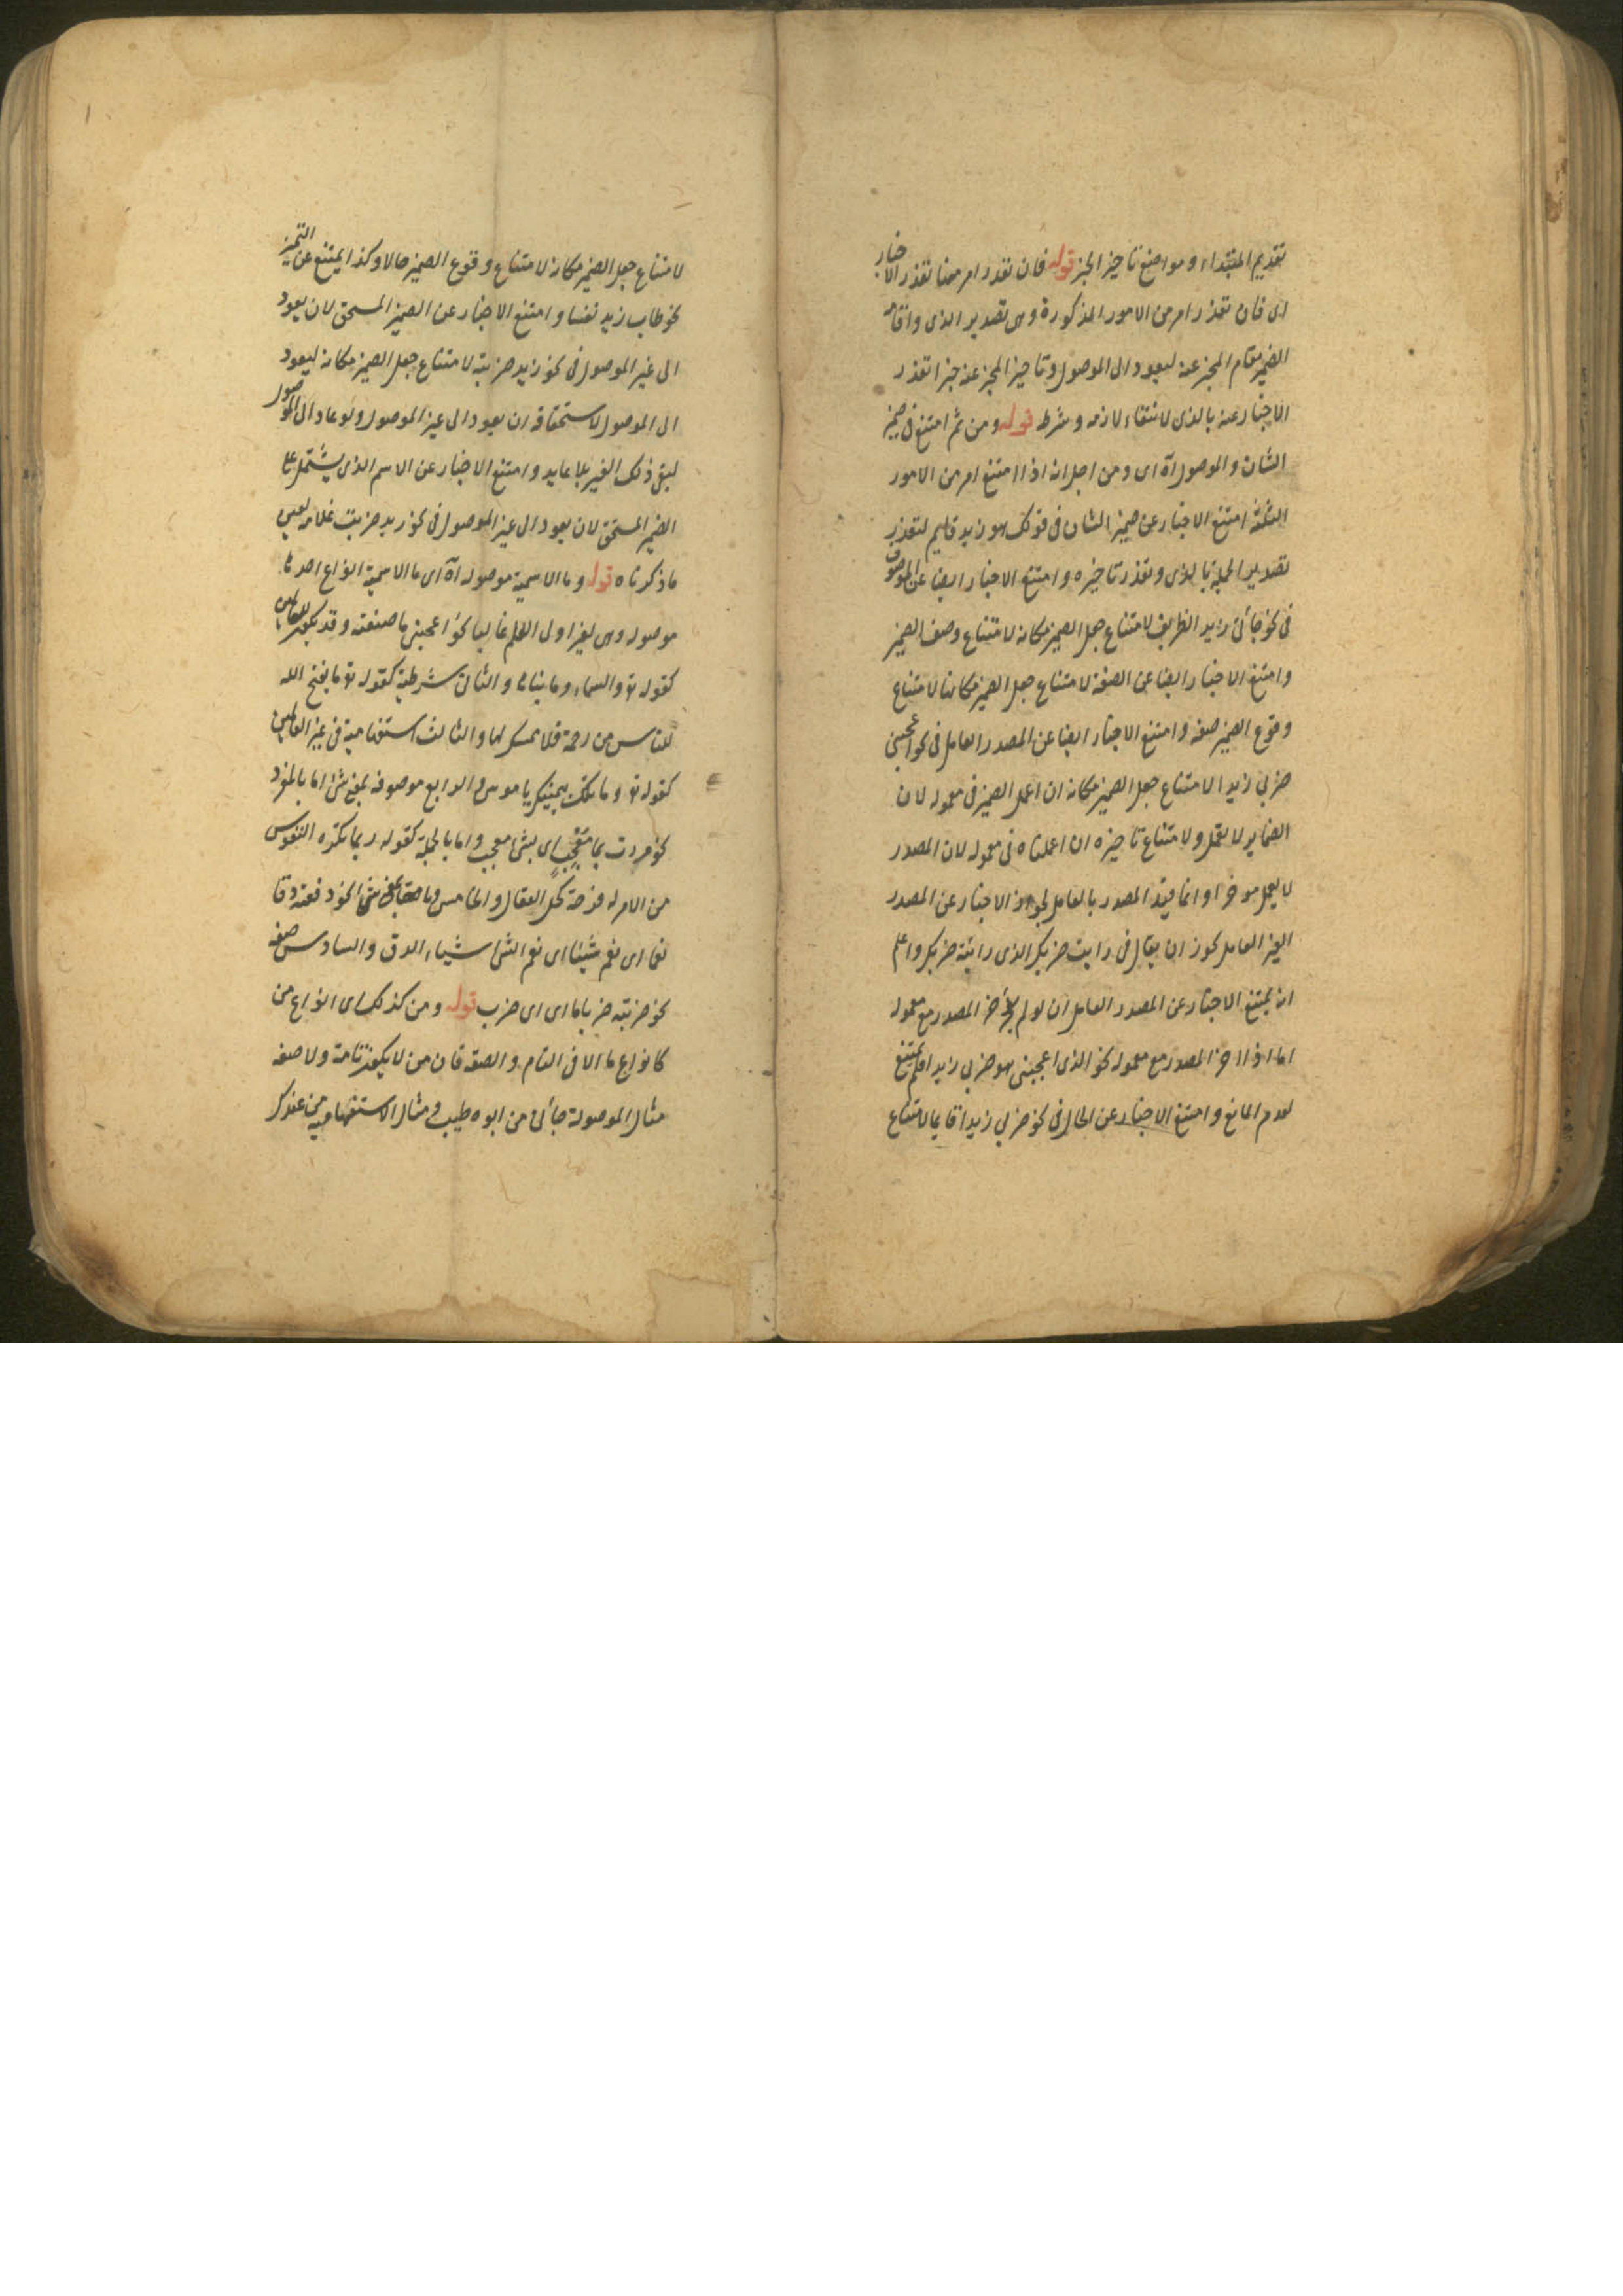 تقديم المبتداء و مواضع تاخير الخبر قوله فان تعذر امر منها تعذر الاخبار
اى فان تعذر امر من الامور المذكورة وهى تصدير الذى واقامة
الضمير مقام المخبر عنه ليعود الى الموصول وتاخير المخبر عنه خبرا تعذر
الاخبار عنه بالذى لانتفاء لازمه وشرطه قوله ومن ثم امتنع فى ضمير
الشان والموصول آه اى ومن اجل انه اذا امتنع امر من الامور
الثلثة امتنع الاخبار عن ضمير الشان فى قولك هو زيد قايم لتعذر
تصدير الجملة بالذى وتعذر تاخيره وامتنع الاخبار ايضا عن الموصوف
فى نحو جائنى زيد الظريف لامتناع جعل الضمير مكانه لامتناع وصف الضمير
وامتنع الاخبار ايضا عن الصفة لامتناع جعل الضمير مكانها لامتناع
وقوع الضمير صفة وامتنع الاخبار ايضا عن المصدر العامل فى نحو اعجبنى
ضربى زيدا لامتناع جعل الضمير مكانه ان اعمل الضمير فى معموله لان
الضماير لا يعمل ولامتناع تاخيره ان اعملناه فى معموله لان المصدر
لا يعمل موخرا وانما قيد المصدر بالعامل لجواز الاخبار عن المصدر
الغير العامل نحو ان يقال فى رايت ضربك الذى رايته ضربك واعلم
انه يمتنع الاخبار عن المصدر العامل ان لو لم يأخر المصدر مع معموله
اما اذا اخر المصدر مع معموله نحو الذى اعجبنى هو ضربى زيدا فلم يمتنع
لعدم المانع وامتنع الاخبار عن الحال فى نحو ضربى زيدا قايما لامتناع
لامتناع جعل الضمير مكانه لامتناع وقوع الضمير حالا وكذا يمتنع عن التميز
نحو طاب زيد نفسا وامتنع الاخبار عن الضمير المستحق لان يعود
الى غير الموصول فى نحو زيد ضربته لامتناع جعل الضمير مكانه ليعود
الى الموصول لاستحقاقه ان يعود الى غير الموصول ولو عاد الى الموصول
لبقى ذلك الغير بلا عايد وامتنع الاخبار عن الاسم الذى يشتمل على
الضمير المستحق لان يعود الى غير الموصول فى نحو زيد ضربت غلامه لعين
ما ذكرناه قوله وما الاسمية موصولة آه اى ما الاسمية انواع احدها
موصولة وهى لغير اولى العلم غالبا نحو اعجبنى ما صنعته وقد يكون للعالمين
كقوله تع والسماء وما بناها والثانى شرطية كقوله تع ما يفتح الله
للناس من رحمة فلا ممسك لها والثالث استفهامية فى غير العالمين
كقوله تع وما تلك بيمينك يا موسى والرابع موصوفة بمعنى شئ اما بالمفرد
نحو مررت بما معجب اى بشئ معجب واما بالجملة كقوله ربما تكره النفوس
من الامر له فرجة كحل العقال والخامس بمعنى شئ نحو دققته دقا
نعما اى نعم شيئا اى نعم الشئ شياء الدق والسادس صفة
نحو ضربته ضربا ما اى اى ضرب قوله ومن كذلك اى انواع من
كانواع ما الا فى التام والصفة فان من لا يكون تامة ولا صفة
مثال الموصولة جائنى من ابوه طيب ومثال الاستفهامية من عندك